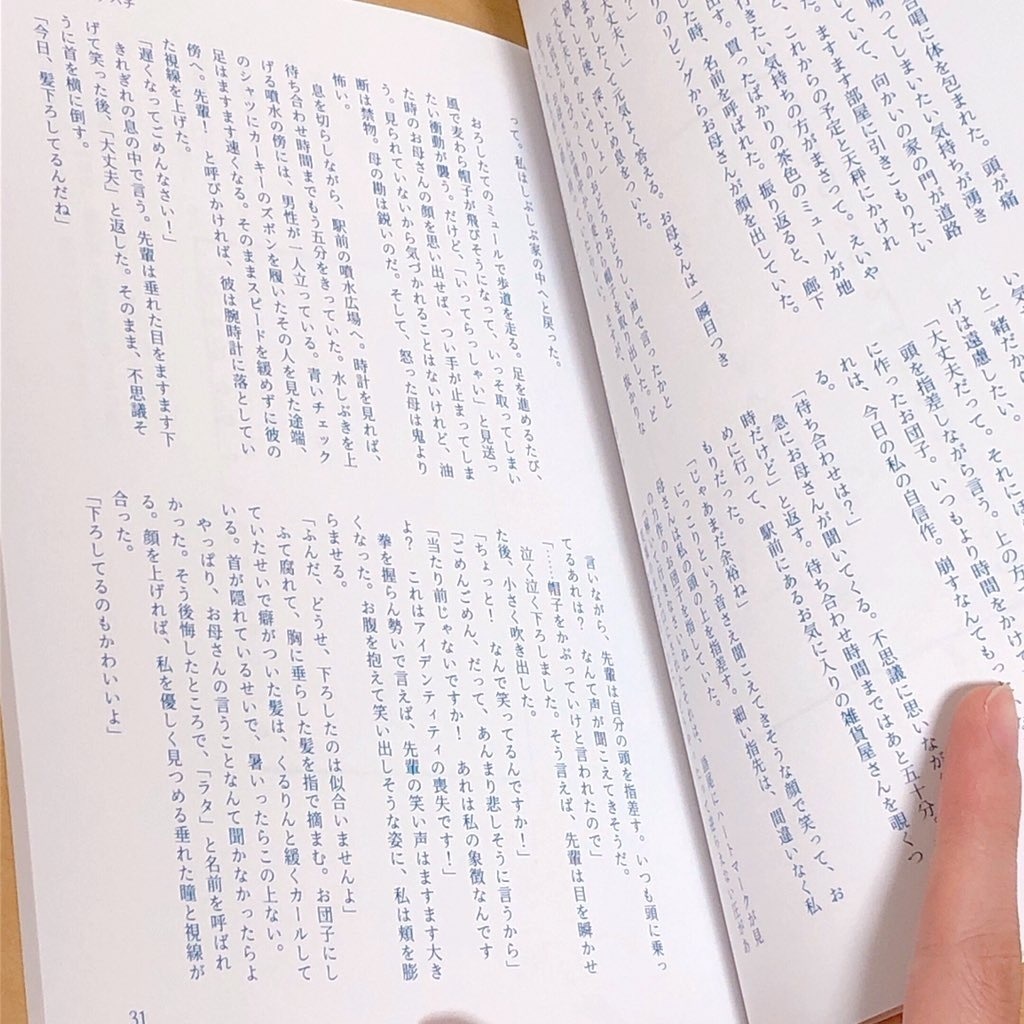 合唱に体を包まれた。頭が痛
帰ってしまいたい気持ちが湧き
いていて、向かいの家の門が道路
た。ますます部屋に引きこもりたい
と、これからの予定と天秤にかけれ
行きたい気持ちの方がまさって。えいや
す。買ったばかりの茶色のミュールが地
した時、名前を呼ばれた。振り返ると、廊下
のリビングからお母さんが顔を出していた。
大丈夫！」
まかしたくて元気よく答える。お母さんは一瞬目つき
した後、深いため息をついた。
と一緒だか
けは遠慮したい。
「大丈夫だって。それに
頭を指差しながら言う。上の方
に作ったお団子。いつもより時間をかけ
れば、今日の私の自信作。崩すなんてもっ
る。
「待ち合わせは？」
急にお母さんが聞いてくる。不思議に思いなが
時だけど」と返す。待ち合わせ時間まではあと五十分。
めに行って、駅前にあるお気に入りの雑貨屋さんを覗くつ
もりだった。
「じゃあまだ余裕ね」
にっこりという音さえ聞こえてきそうな顔で笑って、お
母さんは私の頭の上を指差す。細い指先は、間違いなく私
って。私はしぶしぶ家の中へと戻った。
おろしたてのミュールで歩道を走る。足を進めるたび、
風で麦わら帽子が飛びそうになって、いっそ取ってしまい
たい衝動が襲う。だけど、「いってらっしゃい」と見送っ
た時のお母さんの顔を思い出せば、つい手が止まってしま
う。見られていないから気づかれることはないけれど、油
断は禁物。母の勘は鋭いのだ。そして、怒った母は鬼より
怖い。
息を切らしながら、駅前の噴水広場へ。時計を見れば、
待ち合わせ時間までもう五分をきっていた。水しぶきを上
げる噴水の傍には、男性が一人立っている。青いチェック
のシャツにカーキーのズボンを履いたその人を見た途端、
足はますます速くなる。そのままスピードを緩めずに彼の
傍へ。先輩！　と呼びかければ、彼は腕時計に落としてい
た視線を上げた。
「遅くなってごめんなさい！」
きれぎれの息の中で言う。先輩は垂れた目をますます下
げて笑った後、「大丈夫」と返した。そのまま、不思議そ
うに首を横に倒す。
「今日、髪下ろしてるんだね」
言いながら、先輩は自分の頭を指差す。いつも頭に乗っ
てるあれは？　なんて声が聞こえてきそうだ。
「……帽子をかぶっていけと言われたので」
泣く泣く下ろしました。そう言えば、先輩は目を瞬かせ
た後、小さく吹き出した。
「ちょっと！　なんで笑ってるんですか！」
「ごめんごめん、だって、あんまり悲しそうに言うから」
「当たり前じゃないですか！　あれは私の象徴なんです
よ？　これはアイデンティティの喪失です！」
拳を握らん勢いで言えば、先輩の笑い声はますます大き
くなった。お腹を抱えて笑い出しそうな姿に、私は頬を膨
らませる。
「ふんだ、どうせ、下ろしたのは似合いませんよ」
ふて腐れて、胸に垂らした髪を指で摘まむ。お団子にし
ていたせいで癖がついた髪は、くるりんと緩くカールして
いる。首が隠れているせいで、暑いったらこの上ない。
やっぱり、お母さんの言うことなんて聞かなかったらよ
かった。そう後悔したところで、「ラタ」と名前を呼ばれ
る。顔を上げれば、私を優しく見つめる垂れた瞳と視線が
合った。
「下ろしてるのもかわいいよ」
31